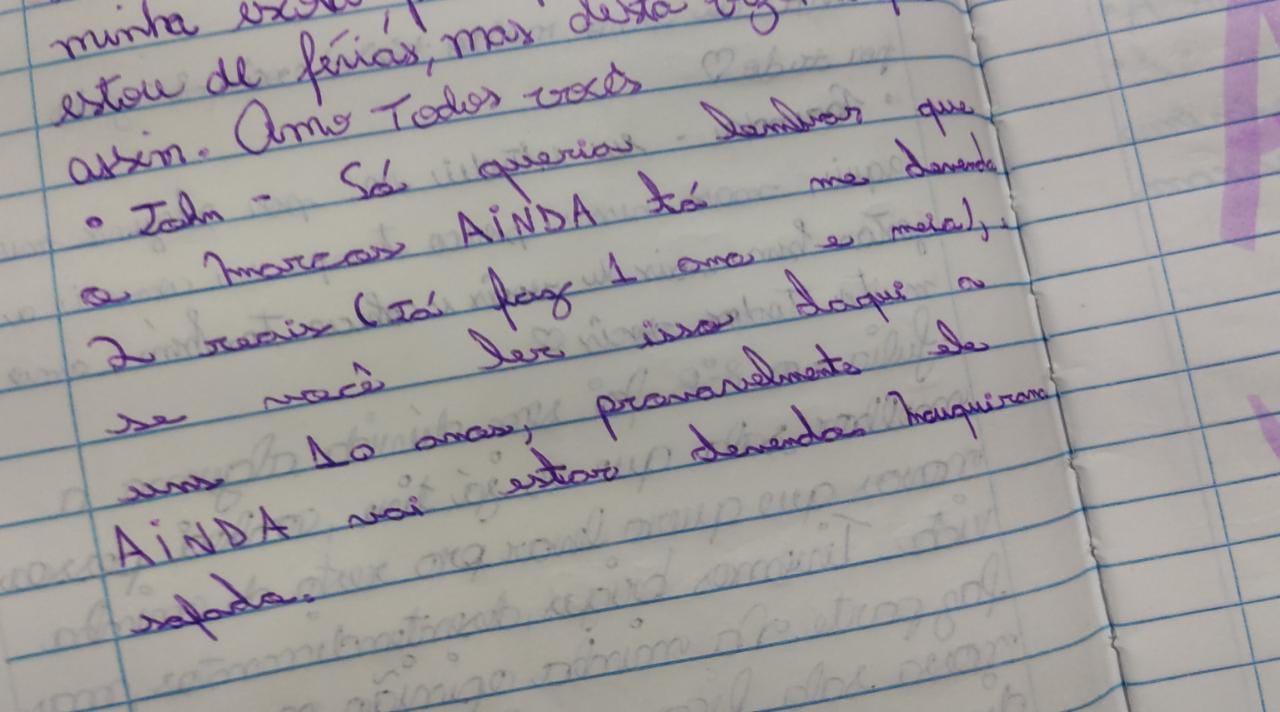 minha
estou de férias, mas desta
assim. Amo Todos vocês
• John - Só queria lembrar que
o Marcos AINDA tá me devendo
2 reais (Já faz 1 ano e meio),
se você ler isso daqui a
uns 10 anos, provavelmente ele
AINDA vai estar devendo.
safado.